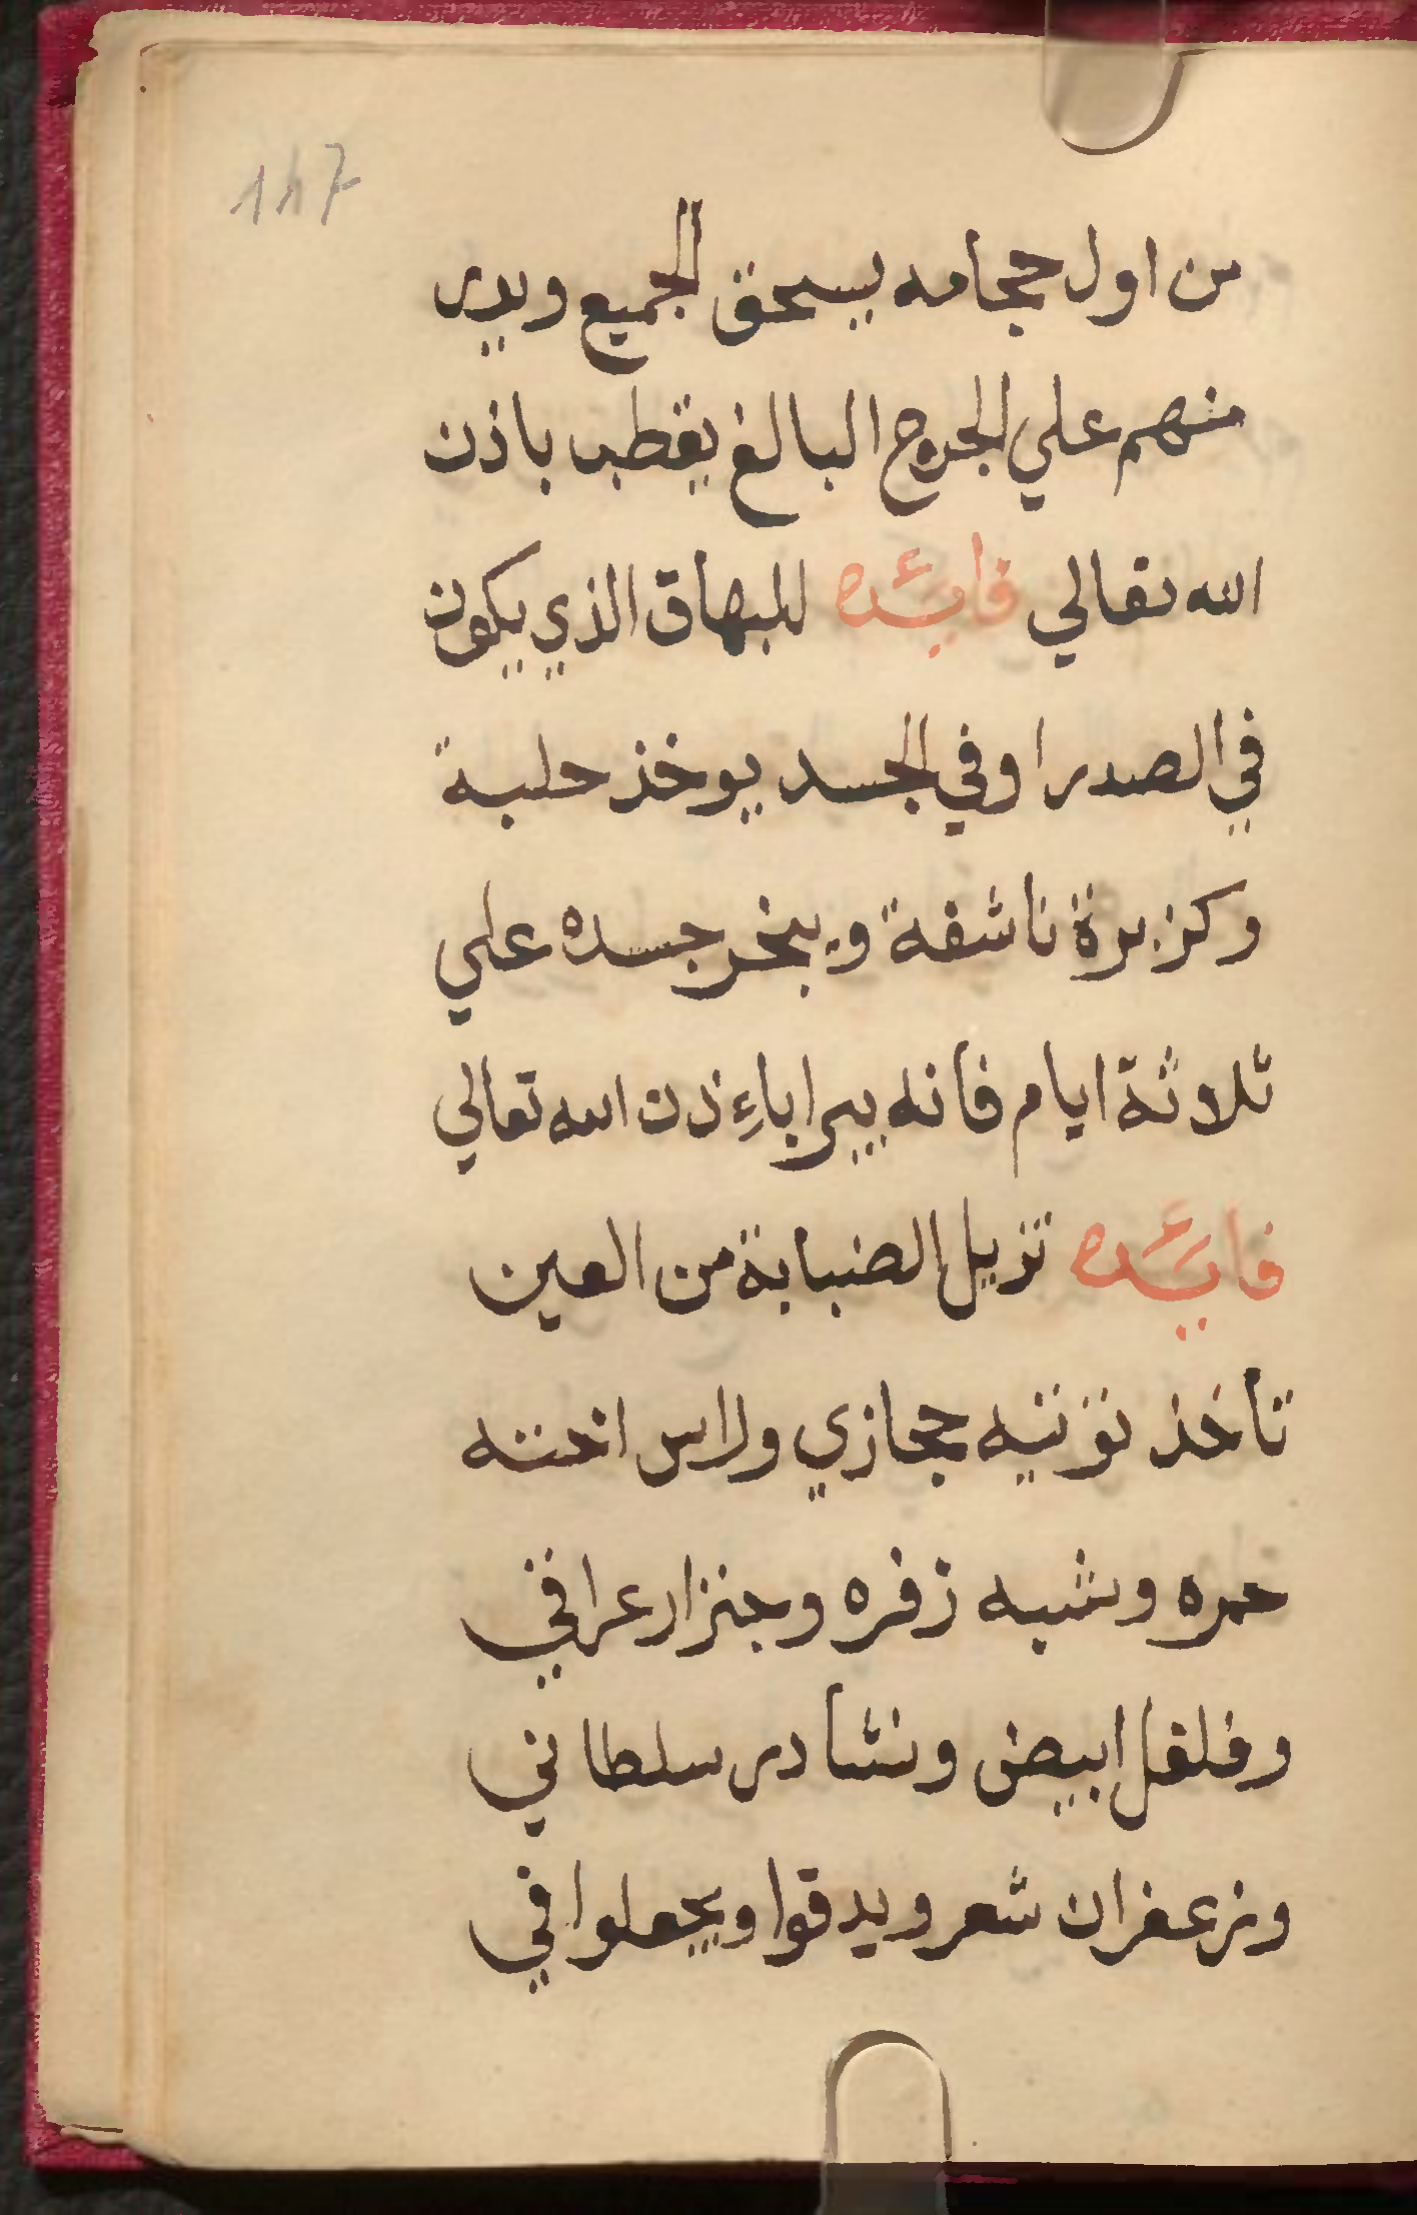 147
من اول حجامه يسحق الجميع ويدر
منهم علي الجروح البالغ يقطب باذن
الله تعالي فايئده للبهاق الذي يكون
في الصدر او في الجسد يوخذ حلبة
وكزبرة ناشفة ويبخر جسده علي
ثلاثة ايام فانه يبرا باءذن الله تعالي
فايئده تزيل الضبابة من العين
تأخذ توتيه حجازي ولراس اختنه
حمره وشبه زفره وجنزار عراقي
وفلفل ابيض ونشادر سلطاني
وزعفران شعر ويدقوا ويجعلوا في